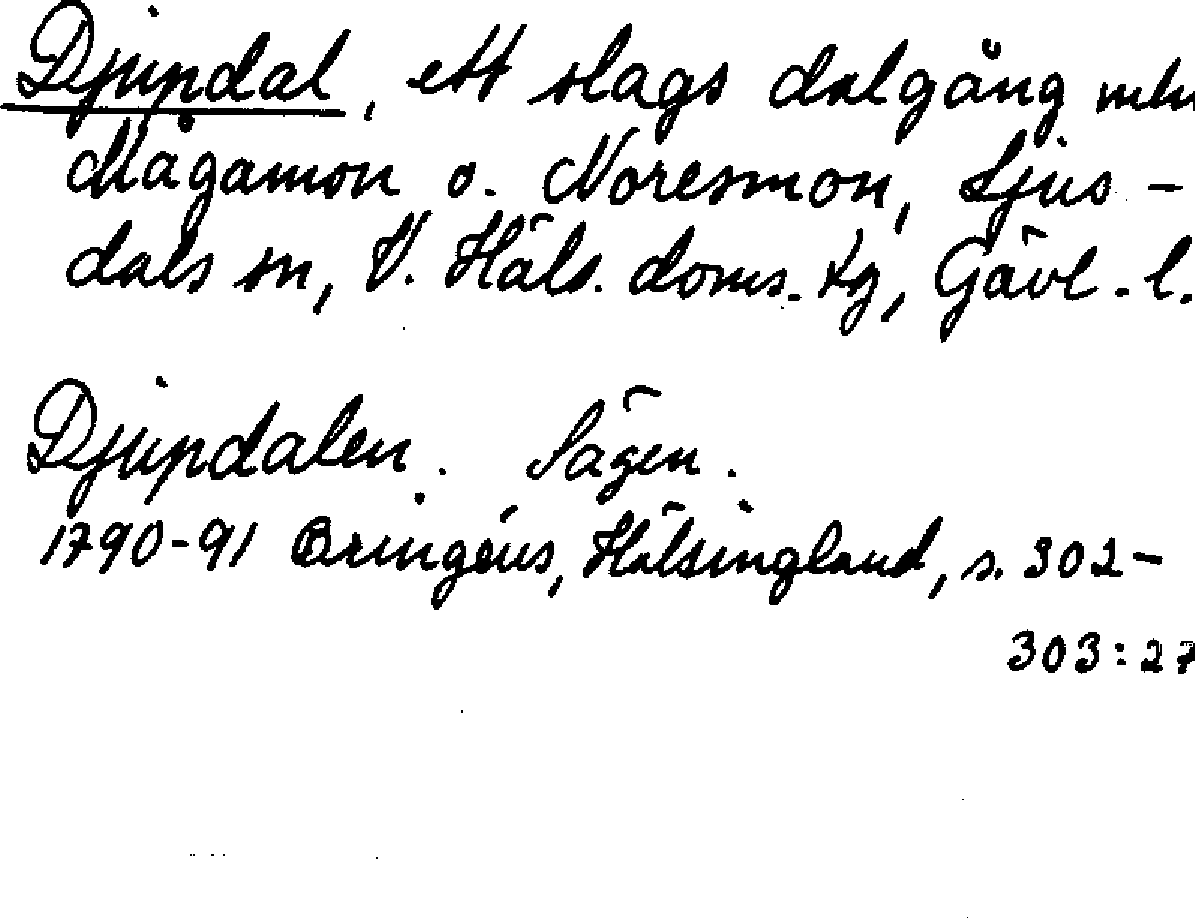 Djupdal, ett slags dalgång mln
Mågamon o. Noresmon, Ljus-
dals sn, V. Häls. doms. tg, Gävl. l.
Djupdalen. Sägen.
1790-91 Bringéus, Hälsingland, s. 302-
303:27